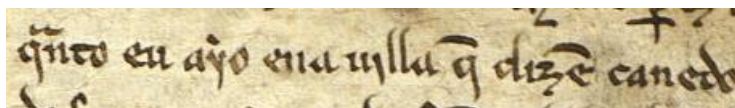 qͣnto eu aỳo ena uilla q̄ dizē canedo